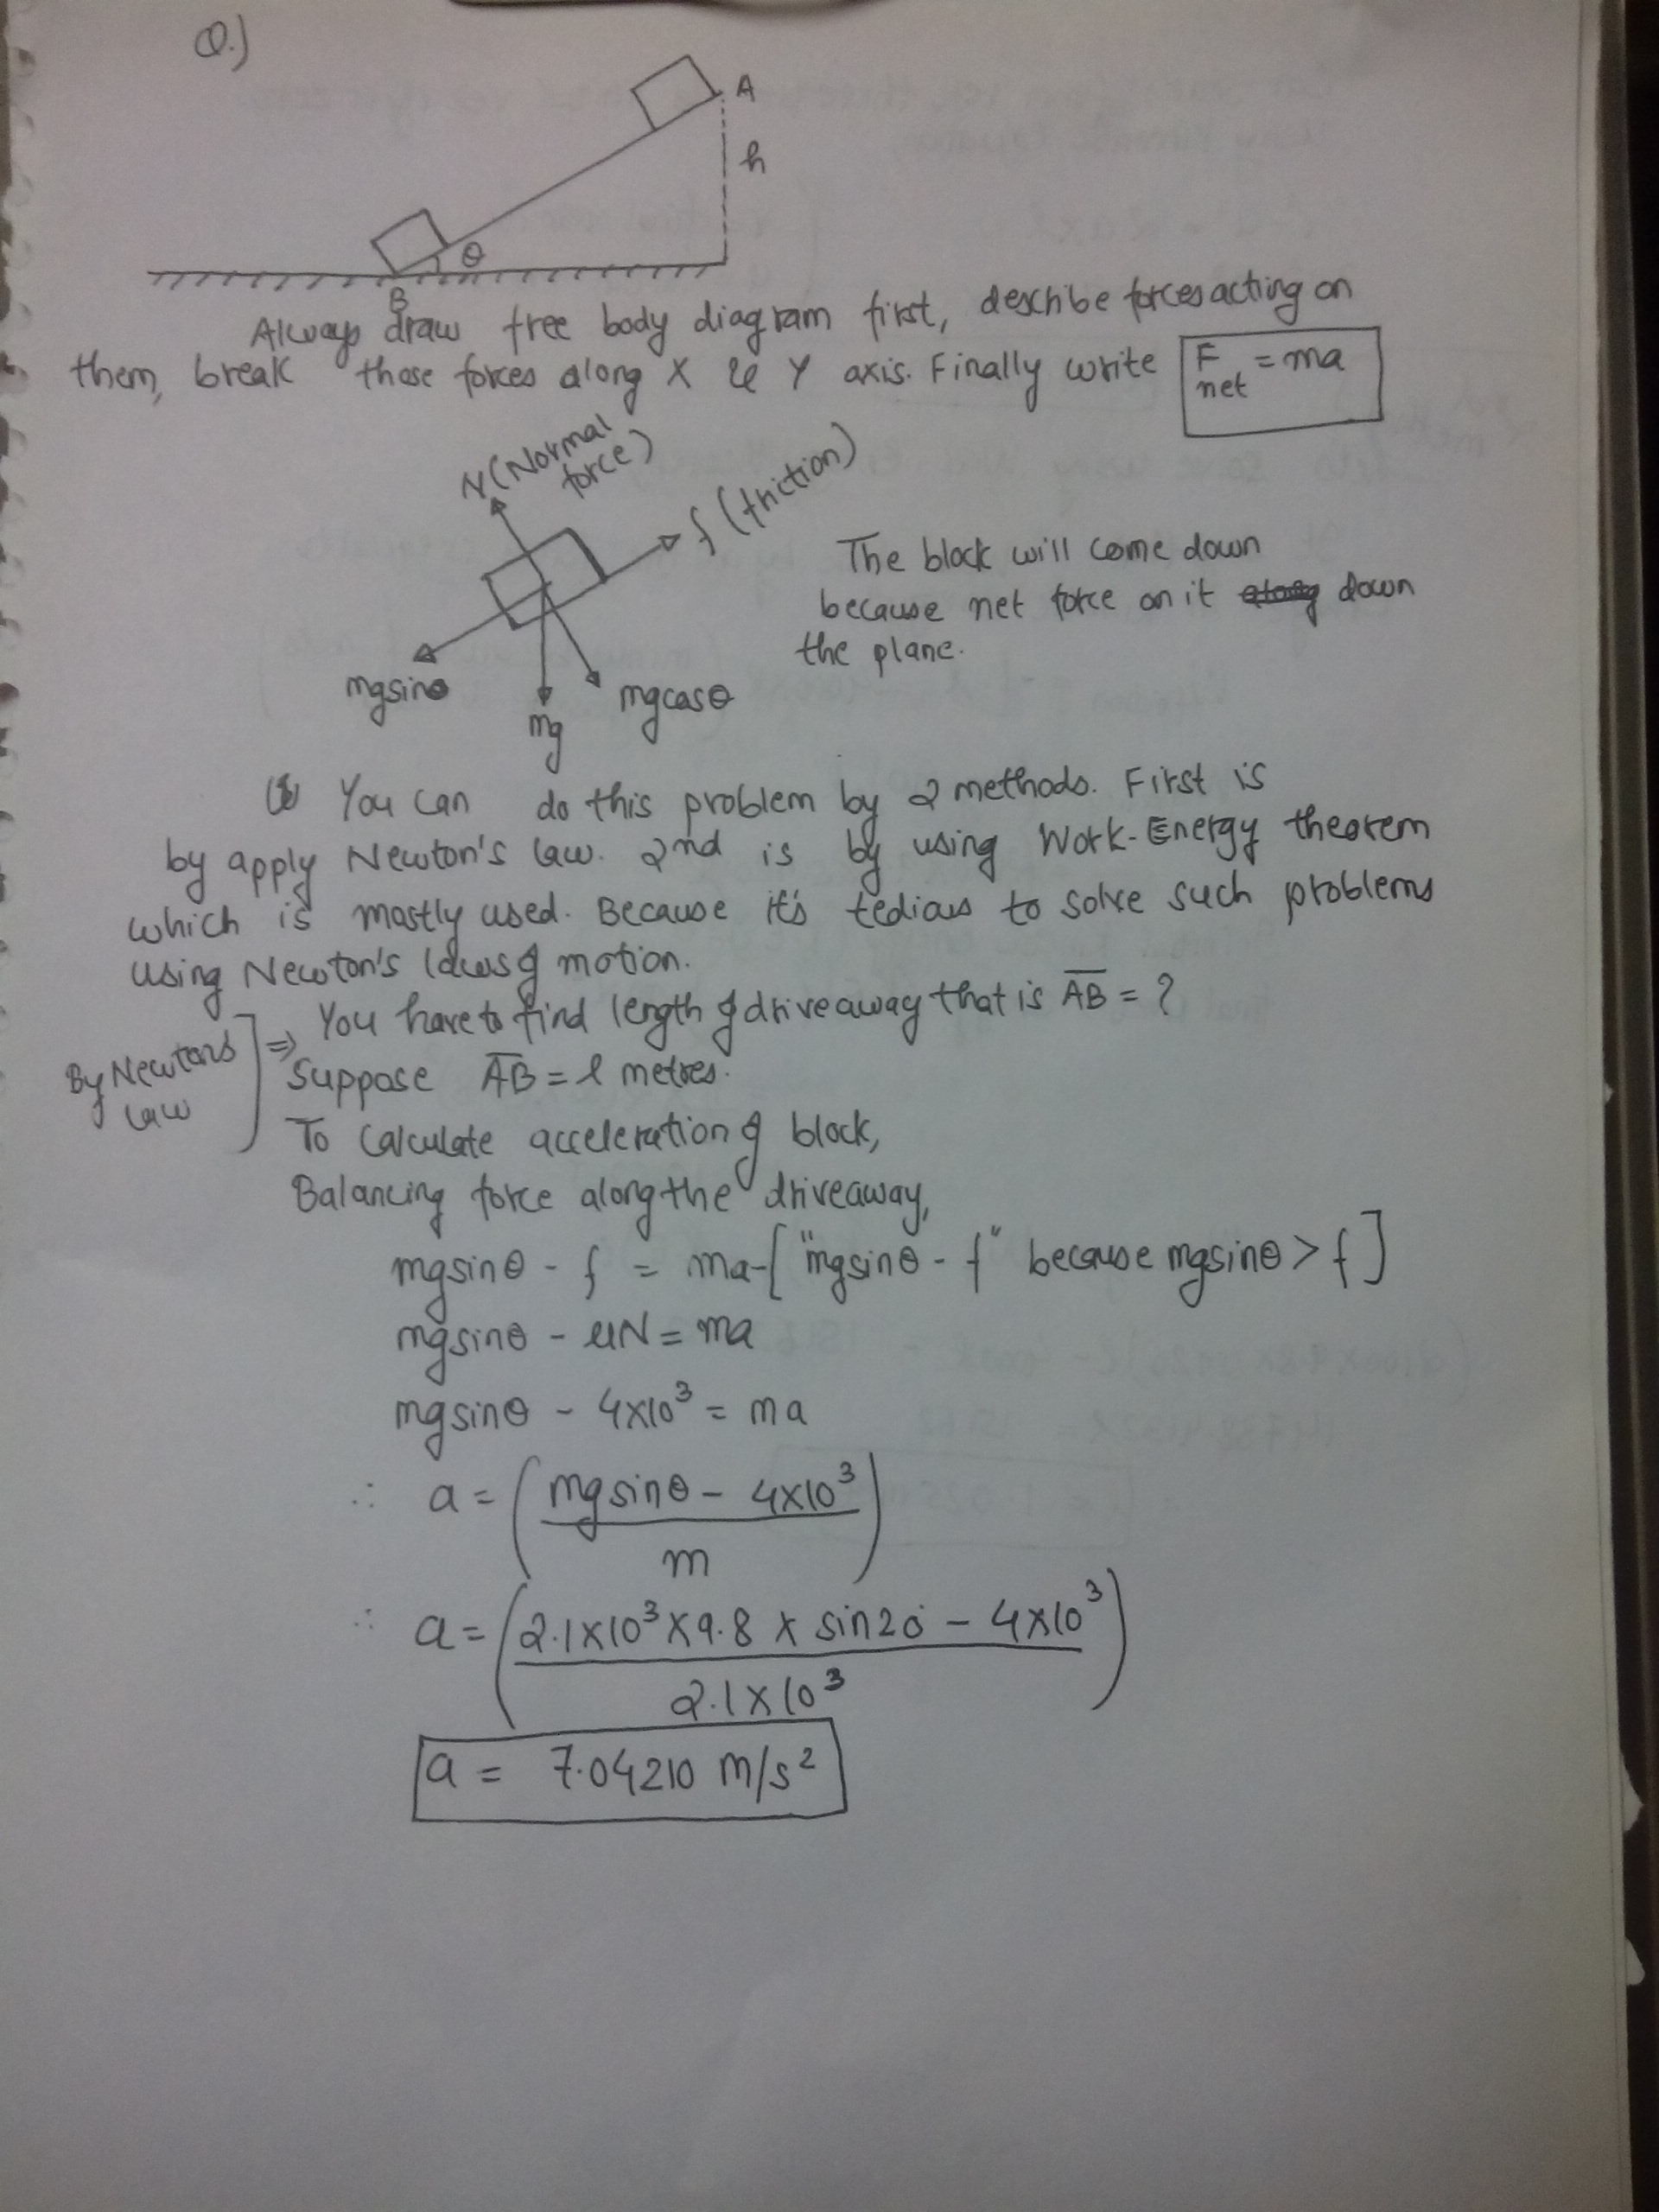 Q.)
A
h
θ
B
Always draw free body diagram first, describe forces acting on
them, break those forces along X & Y axis. Finally write F net = ma
N (Normal force)
f (friction)
The block will come down
because net force on it down
the plane.
mgsinθ
mg
mgcosθ
You can do this problem by 2 methods. First is
by apply Newton's law. 2nd is by using Work-Energy theorem
which is mostly used. Because it's tedious to solve such problems
using Newton's laws of motion.
By Newtons law ] ⇒ You have to find length of driveaway that is AB = ?
Suppose AB = l metres.
To calculate acceleration of block,
Balancing force along the driveaway,
mgsinθ - f = ma - ["mgsinθ - f" because mgsinθ > f]
mgsinθ - μN = ma
mgsinθ - 4×10³ = ma
∴ a = (mgsinθ - 4×10³ / m)
∴ a = (2.1×10³×9.8 × sin20° - 4×10³ / 2.1×10³)
a = 7.04210 m/s²